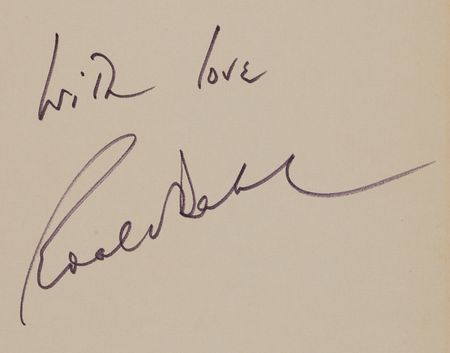 with love
Roald Dahl